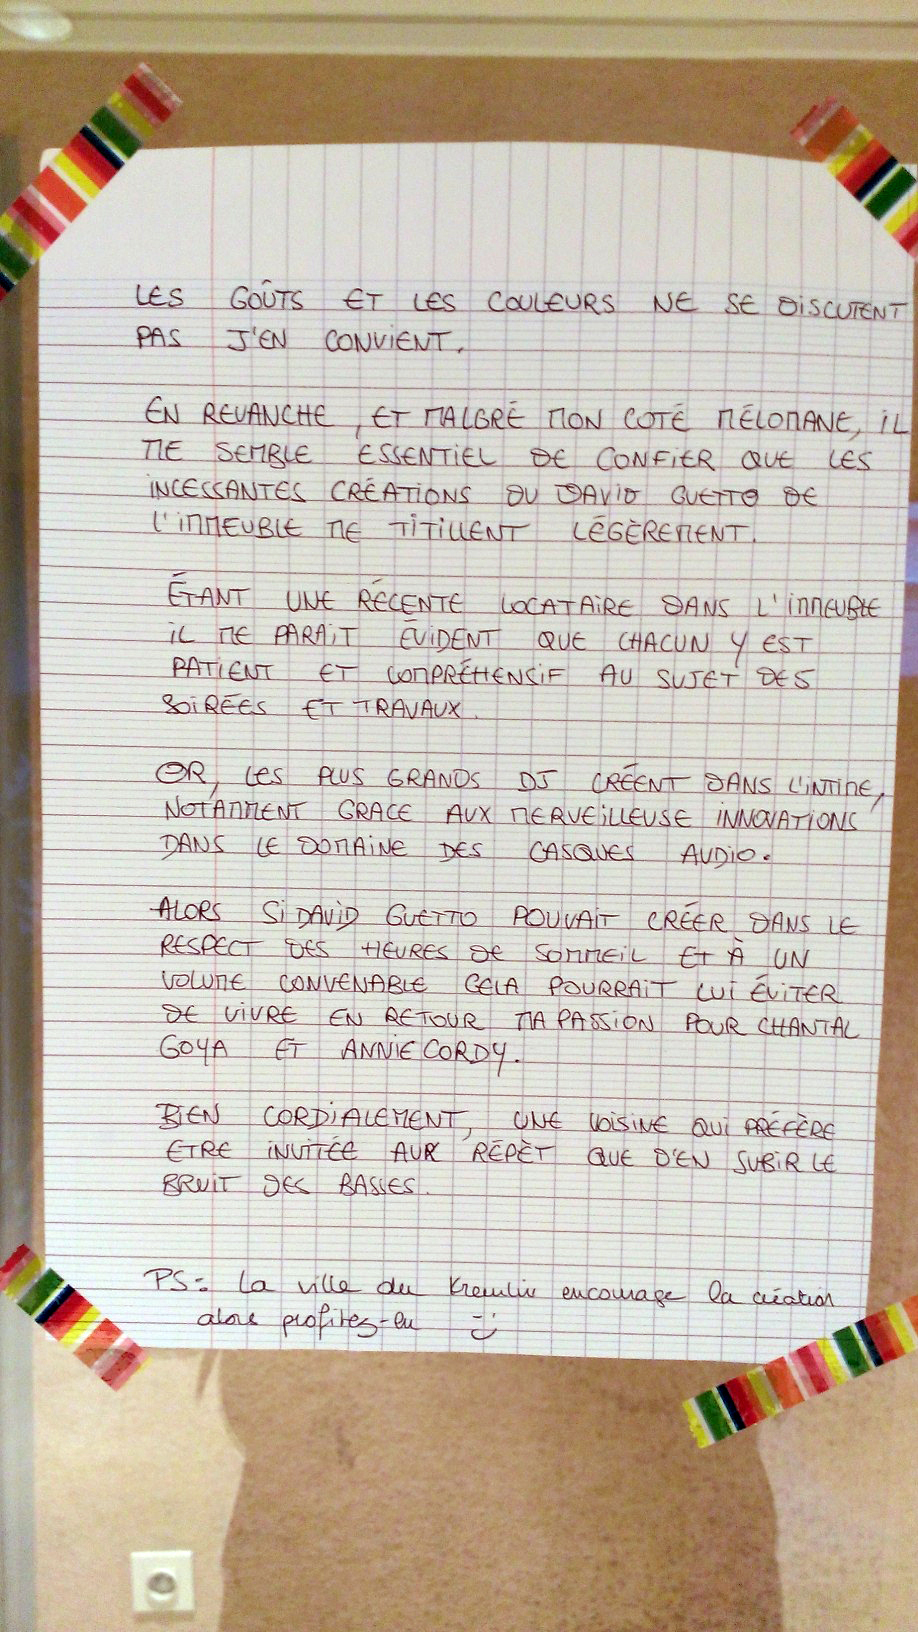 LES GOÛTS ET LES COULEURS NE SE DISCUTENT
PAS J'EN CONVIENT.
EN REVANCHE, ET MALGRÉ MON COTÉ MÉLOMANE, IL
ME SEMBLE ESSENTIEL DE CONFIER QUE LES
INCESSANTES CRÉATIONS DU DAVID GUETTO DE
L'IMMEUBLE ME TITILLENT LÉGÈREMENT.
ÉTANT UNE RÉCENTE LOCATAIRE DANS L'IMMEUBLE
IL ME PARAIT ÉVIDENT QUE CHACUN Y EST
PATIENT ET COMPRÉHENSIF AU SUJET DES
SOIRÉES ET TRAVAUX.
OR, LES PLUS GRANDS DJ CRÉENT DANS L'INTIME,
NOTAMMENT GRACE AUX MERVEILLEUSE INNOVATIONS
DANS LE DOMAINE DES CASQUES AUDIO.
ALORS SI DAVID GUETTO POUVAIT CRÉER DANS LE
RESPECT DES HEURES DE SOMMEIL ET À UN
VOLUME CONVENABLE CELA POURRAIT LUI ÉVITER
DE VIVRE EN RETOUR MA PASSION POUR CHANTAL
GOYA ET ANNIE CORDY.
BIEN CORDIALEMENT, UNE VOISINE QUI PRÉFÈRE
ETRE INVITÉE AUX RÉPÈT QUE D'EN SUBIR LE
BRUIT DES BASSES.
PS: La ville du Kremlin encourage la création
alors profitez-en =)